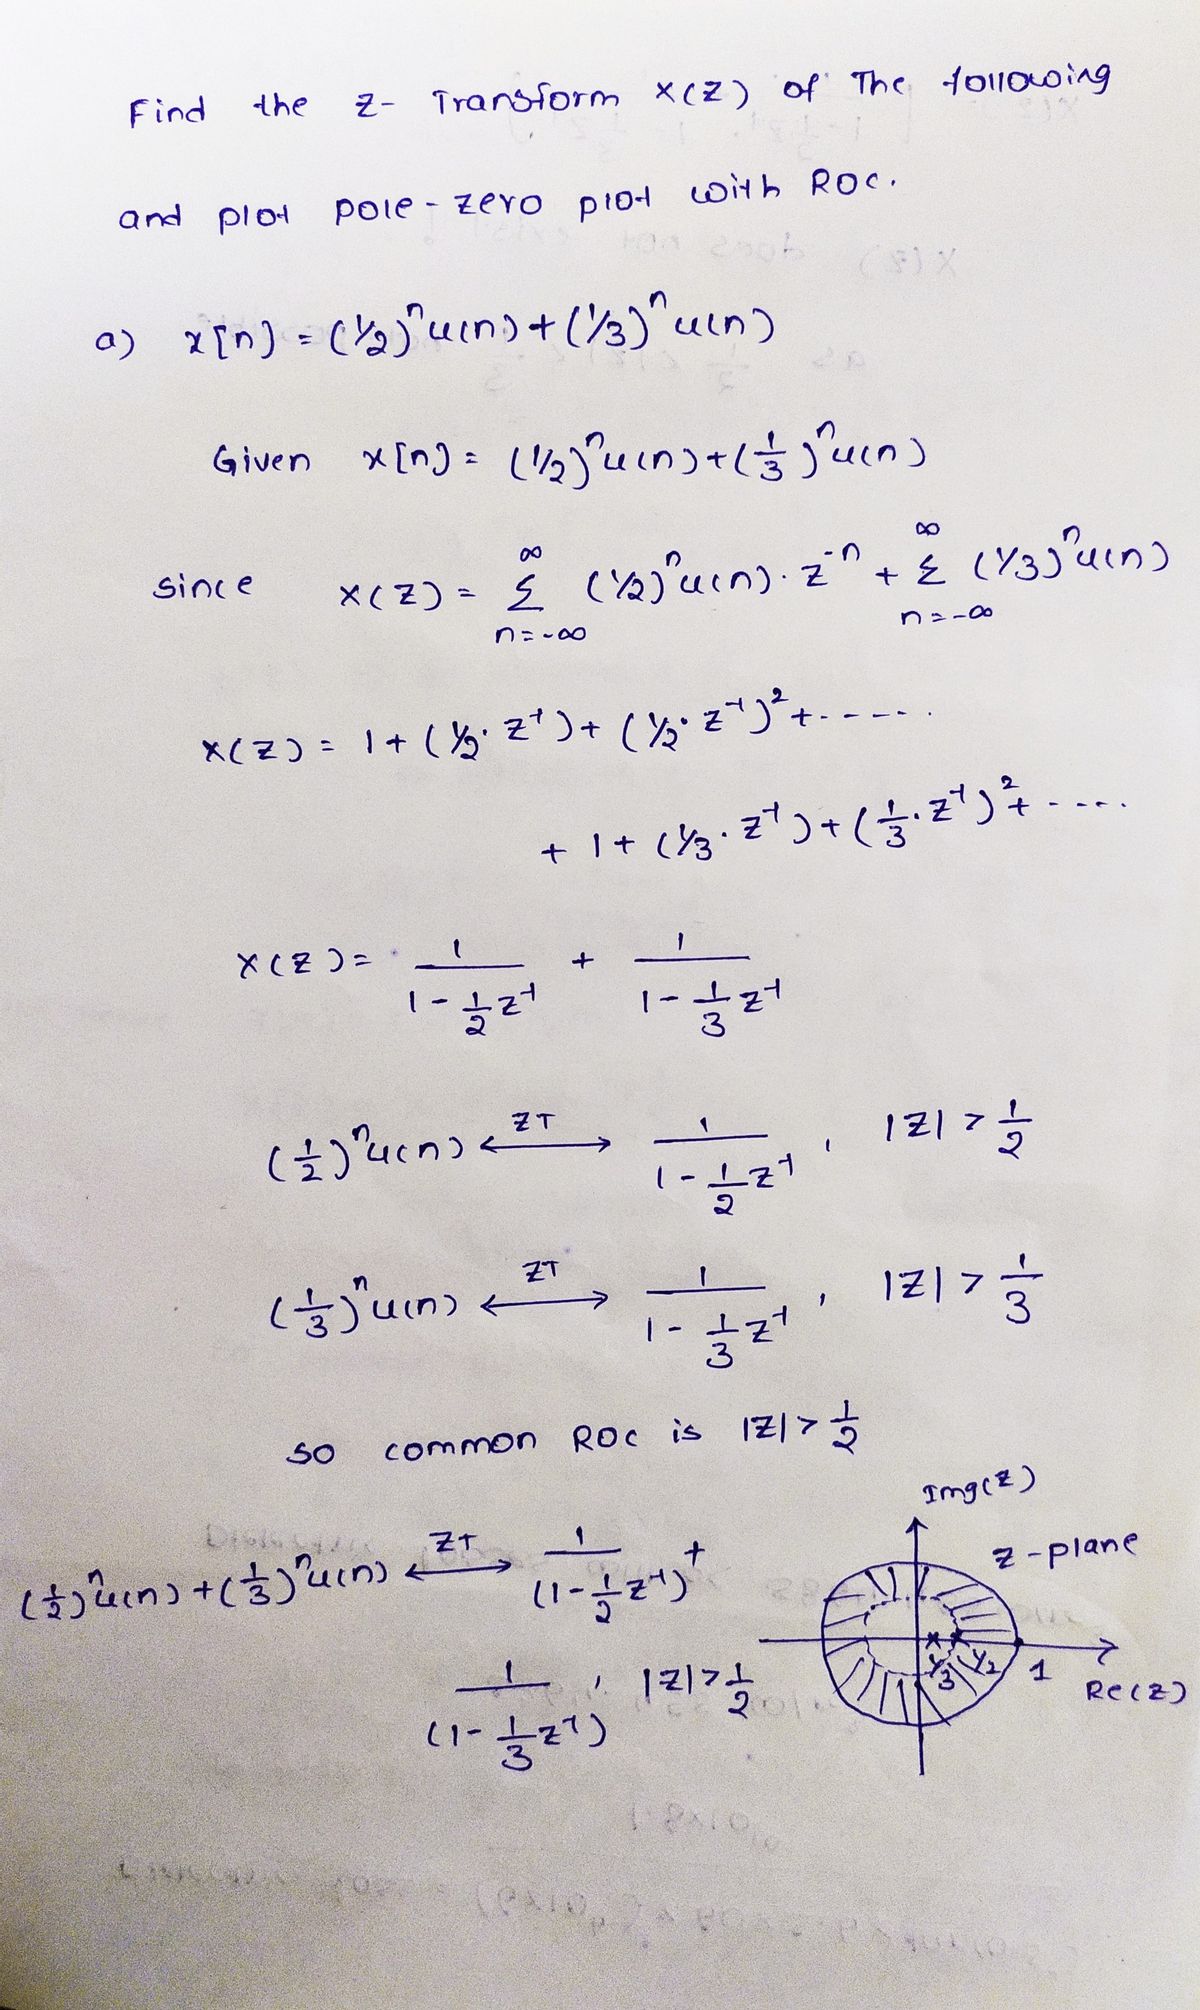 Find the z- Transform X(Z) of The following
and plot pole-zero plot with ROC.
a) x[n] = (1/2)^n u(n) + (1/3)^n u(n)
Given x[n] = (1/2)^n u(n) + (1/3)^n u(n)
since X(Z) = Σ_{n=-∞}^{∞} (1/2)^n u(n) · z^{-n} + Σ_{n=-∞}^{∞} (1/3)^n u(n)
X(Z) = 1 + (1/2 · z^{-1}) + (1/2 · z^{-1})^2 + - - - - - .
+ 1 + (1/3 · z^{-1}) + (1/3 · z^{-1})^2 + - - - - .
X(Z) = 1/(1 - 1/2 z^{-1}) + 1/(1 - 1/3 z^{-1})
(1/2)^n u(n) <-ZT-> 1/(1 - 1/2 z^{-1}) , |Z| > 1/2
(1/3)^n u(n) <-ZT-> 1/(1 - 1/3 z^{-1}) , |Z| > 1/3
so common ROC is |Z| > 1/2
(1/2)^n u(n) + (1/3)^n u(n) <-ZT-> 1/(1 - 1/2 z^{-1}) +
1/(1 - 1/3 z^{-1}) , |Z| > 1/2
Img(z)
z-plane
1/3 1/2 1
Re(z)